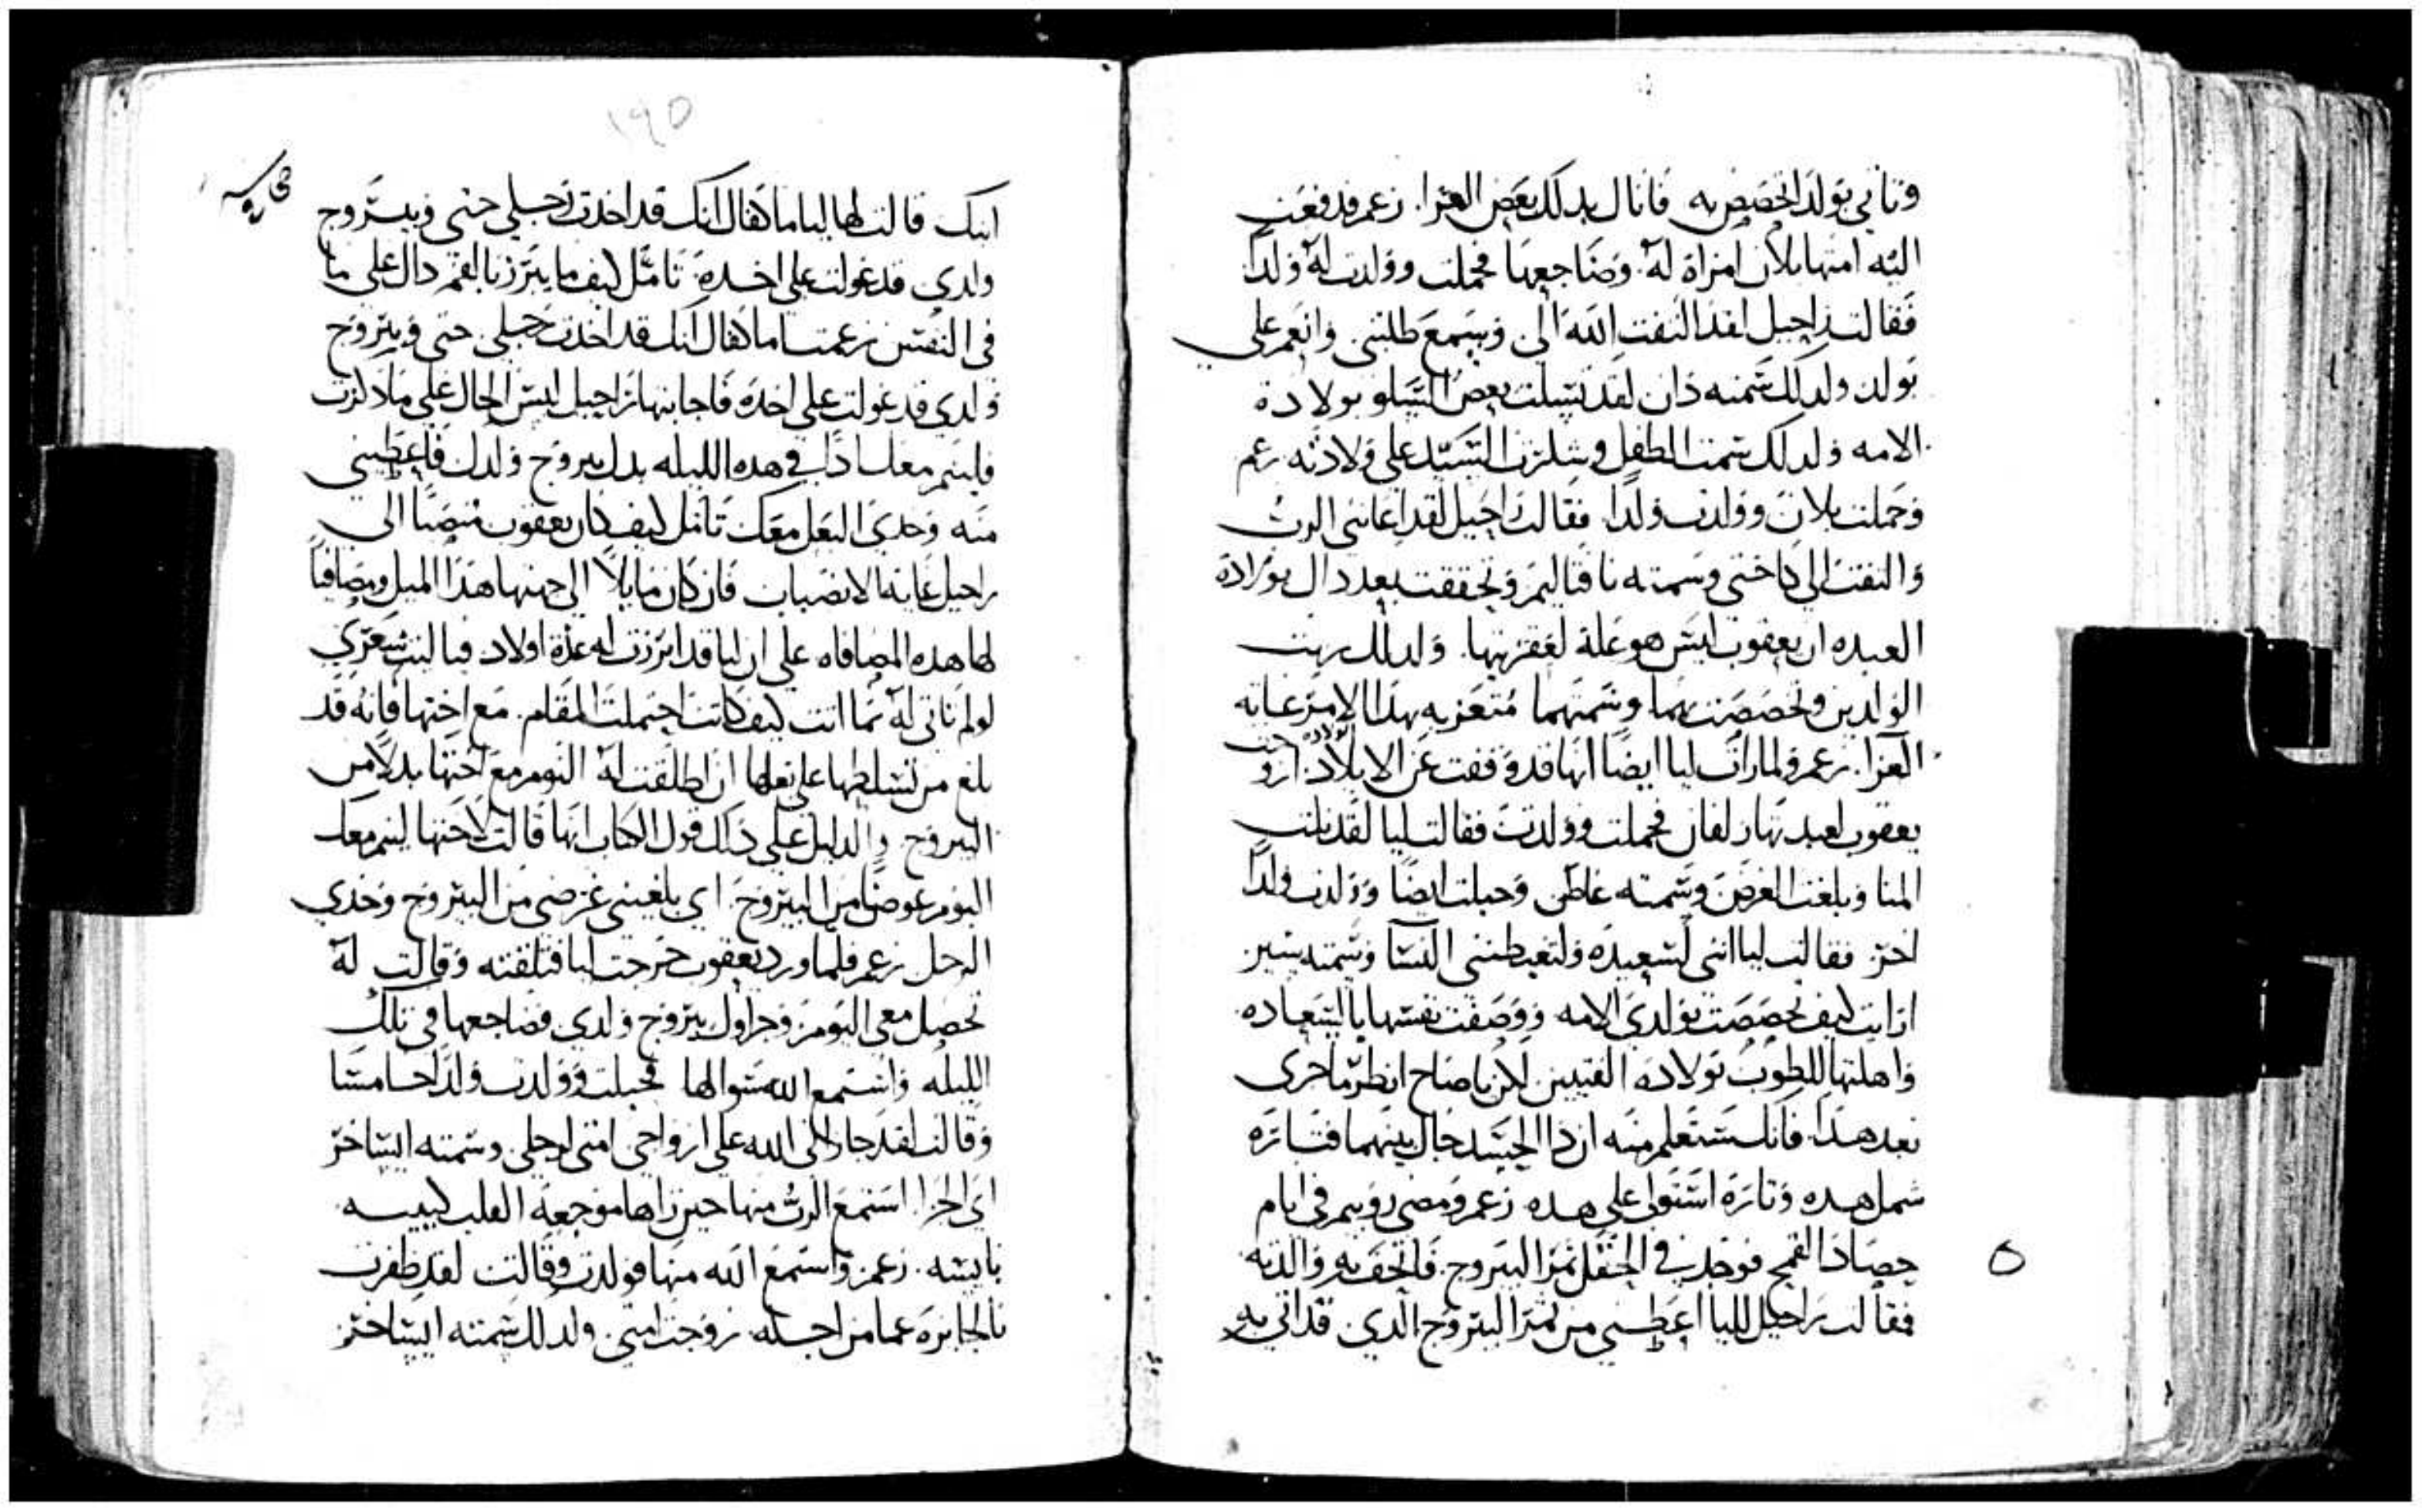 وتاتي بولد اتخصص به فانال بدلك بعض العزا. زعم فدفعت
اليه امتها بلان امراة له وضاجعها فحملت وولدت له ولدا
فقالت راحيل لقد التفت الله الى وسمع طلبتي وانعم علي
بولد ولدلك سمته دان لقد تسلت بعض التسلو بولادة
الامه ولدلك سمت الطفل وشكرت السيد على ولادته زعم
وحملت بلان وولدت ولدا فقالت راحيل لقد اعانني الرب
والتفت الي كاختي وسمته نافتاليم وتحققت بعد دال بولادة
العبده ان يعقوب ليس هو علة لعقرتيها. ولدلك ربت
الولدين وتخصصت بهما وسمتهما متعزيه بهدا الامر غاية
العزا. زعم ولما رات ليا ايضا انها قد وقفت عن الايلاد الولاده ازوجت
يعقوب لعبدتها زلفان فحملت وولدت فقالت ليا لقد نلت
المنا وبلغت الغرض وسمته غاطس وحبلت ايضا وولدت ولدا
اخر فقالت ليا انني لسعيده ولتغبطنني النسا وسمته يشير
ارايت كيف تخصصت بولدي الامه ووصفت نفسها بالسعاده
واهلتها للطوب بولادة الفتيين لكن ياصاح انظر ما جرى
بعد هدا. فانك ستعلم منه ان دا الحسد جال بينهما فتارة
شمل هده وتارة استولى على هده زعم ومضى روبيم في ايام
حصاد القمح فوجد في الحقل ثمر اليبروح. فاتحف به والدته
فقالت راحيل لليا اعطيني من ثمر اليبروح الدي قد اتي به
١٩٥
ابنك قالت لها ليا ما كفاك انك قد اخدت رجلي حتى ويبروح
ولدي قد عولت علي اخده تامل كيف ما يبرز بالفم دال على ما
في النفس زعمت اما كفاك انك قد اخدت رجلي حتى ويبروح
ولدي قد عولت على اخده فاجابتها راحيل ليس الحال على ما دكرت
فلينم معك ادا في هده الليله بدل يبروح ولدك فاعطيني
منه وخدي البعل معك تامل كيف كان يعقوب منصبا الى
راحيل غاية الانصباب فان كان مايلا الى جهتها هدا الميل ومصافيا
لها هده المصافاه على ان ليا قد ابرزت له عدة اولاد فياليت شعري
لو لم تاتي له بما اتت كيف كانت احتملت المقام مع اختها فانه قد
بلغ من تسلطها على بعلها ان اطلقت له النوم مع اختها بدلا من
اليبروح والدليل على دلك قول الكتاب انها قالت لاختها لينم معك
اليوم عوضا من اليبروح. اي بلغيني غرضي من اليبروح وخدي
الرجل زعم فلما ورد يعقوب خرجت ليا فتلقته وقالت له
تحصل معي اليوم وجزا ولك يبروح ولدي فضاجعها في تلك
الليله واستمع الله سوالها فحبلت وولدت ولدا خامسا
وقالت لقد جازاني الله على ازواجي امتي لرجلي وسمته ايساخر
اي الجزا استمع الرب منها حين راها موجعة القلب كييبه
بايسه. زعم واستمع الله منها فولدت وقالت لقد ظفرت
بالجايزة عما من اجله زوجت امتي ولدلك سمته ايساخر